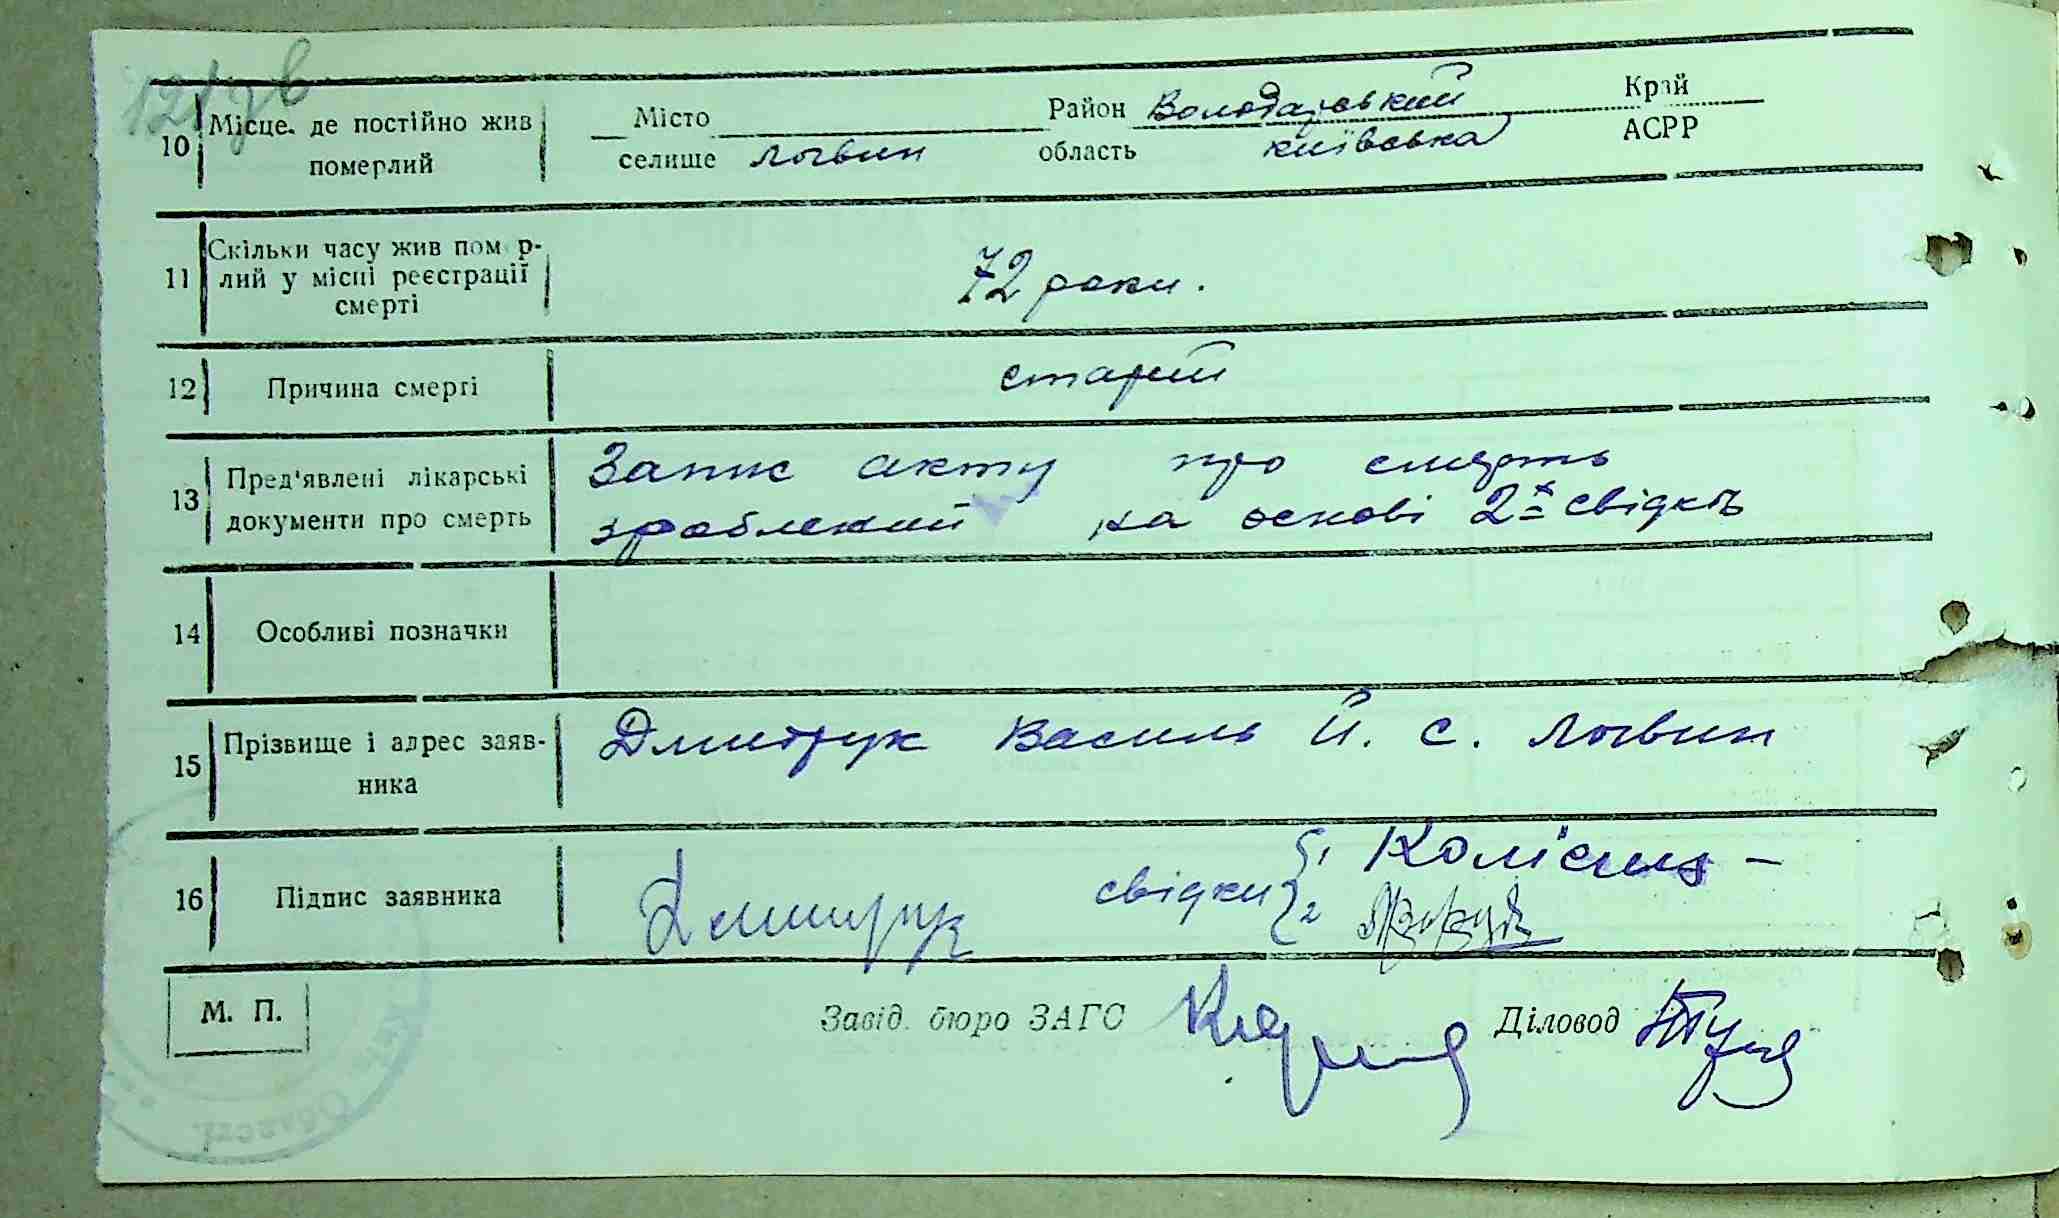 10 Місце. де постійно жив померлий
Місто Район Володарський Край
селише Логвин область київська АСРР
11 Скільки часу жив пом р-
лий у місці реєстрації
смерті
72 роки.
12 Причина смерті старий
13 Пред'явлені лікарські
документи про смерть
Запис акту про смерть
зроблений на основі 2х свідків
14 Особливі позначки
15 Прізвище і адрес заяв-
ника
Дмитрук Василь Й. с. Логвин
16 Підпис заявника Дмитрук свідки 1 Колісник - 2
М. П. Завід. бюро ЗАГС Діловод
Області